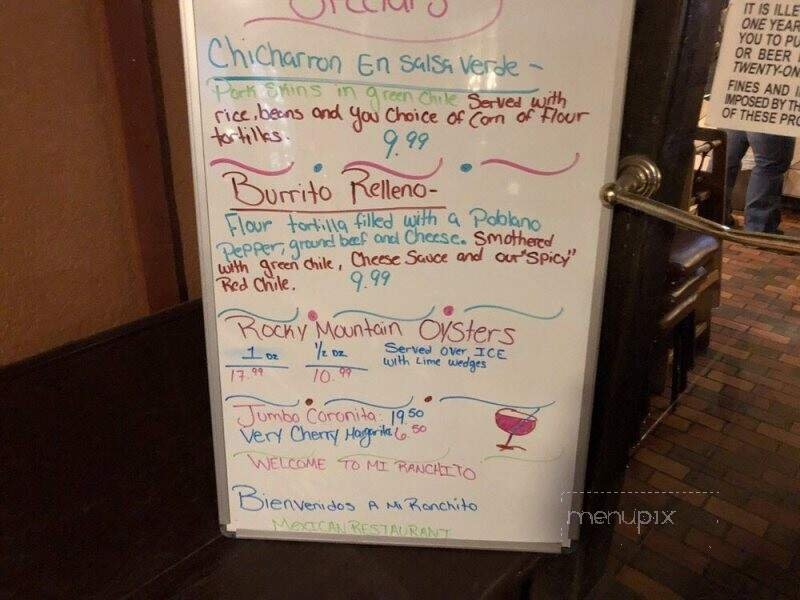 Specials
Chicharron En Salsa Verde -
Pork Skins in green chile Served with
rice, beans and you Choice of Corn of Flour
tortillas. 9.99
Burrito Relleno-
Flour tortilla filled with a Poblano
Pepper, ground beef and Cheese. Smothered
with green chile, Cheese Sauce and our "Spicy"
Red Chile. 9.99
Rocky Mountain Oysters
1 oz 1/2 oz Served Over ICE
17.99 10.99 with Lime wedges
Jumbo Coronita: 19.50
Very Cherry Margarita 6.50
WELCOME TO MI RANCHITO
Bienvenidos A Mi Ranchito
MEXICAN RESTAURANT
IT IS ILLE
ONE YEAR
YOU TO PU
OR BEER
TWENTY-ON
FINES AND I
IMPOSED BY TH
OF THESE PRO
menupix